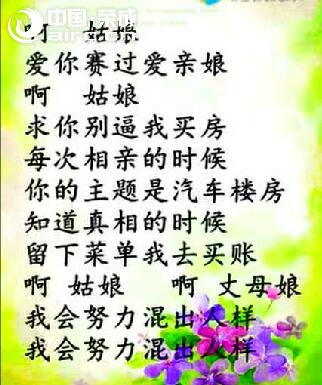 中国 荣成
啊 姑娘
爱你赛过爱亲娘
啊 姑娘
求你别逼我买房
每次相亲的时候
你的主题是汽车楼房
知道真相的时候
留下菜单我去买账
啊 姑娘 啊 丈母娘
我会努力混出人样
我会努力混出人样